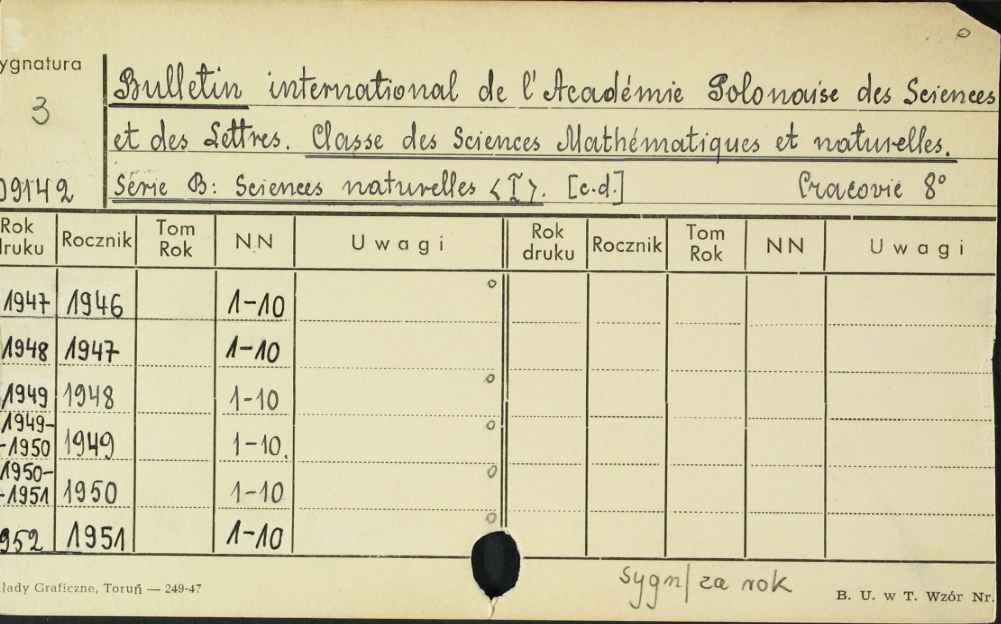 ygnatura
3
09142
Bulletin international de l'Académie Polonaise des Sciences
et des Lettres. Classe des Sciences Mathématiques et naturelles.
Série B: Sciences naturelles <I>. [c.d.] Cracovie 8°
Rok druku Rocznik Tom Rok NN Uwagi Rok druku Rocznik Tom Rok NN Uwagi
1947 1946 1-10
1948 1947 1-10
1949 1948 1-10
1949-
-1950 1949 1-10.
1950-
-1951 1950 1-10
952 1951 1-10
Sygn/ za rok
łady Graficzne, Toruń — 249-47
B. U. w T. Wzór Nr.